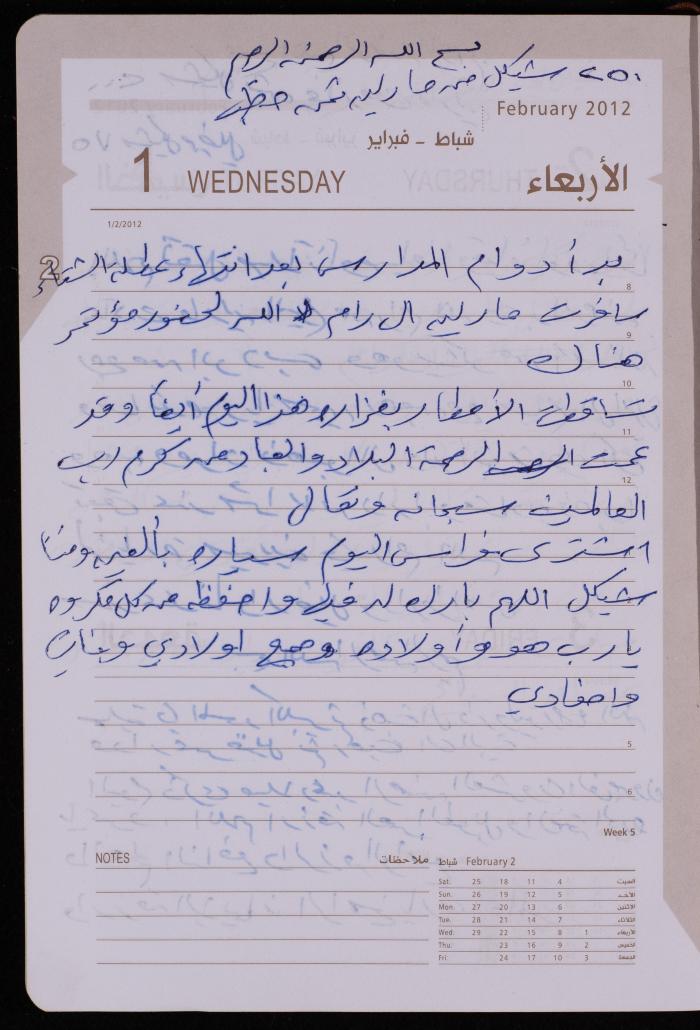 بسم الله الرحمن الرحيم
٢٥٠ شيكل من ماريه ثمن
February 2012
شباط - فبراير
1 WEDNESDAY الأربعاء
1/2/2012
بدأ دوام المدارس بعد انتهاء عطلة الشتاء
سافرت ماريه الى رام الله لحضور مؤتمر
هناك
تساقطت الأمطار بغزاره هذا اليوم أيضاً وقد
عمت الرحمة البلاد والعباد من كرم رب
العالمين سبحانه وتعالى
اشترى فراس اليوم سياره بألفين ومئتا
شيكل اللهم بارك له فيها واحفظه من كل مكروه
يارب هو وأولاده وجميع اولادي وبناتي
واحفادي
8
9
10
11
12
5
6
Week 5
NOTES ملاحظات
شباط February 2
Sat. 25 18 11 4 السبت
Sun. 26 19 12 5 الأحد
Mon. 27 20 13 6 الاثنين
Tue. 28 21 14 7 الثلاثاء
Wed. 29 22 15 8 1 الأربعاء
Thu. 23 16 9 2 الخميس
Fri. 24 17 10 3 الجمعة